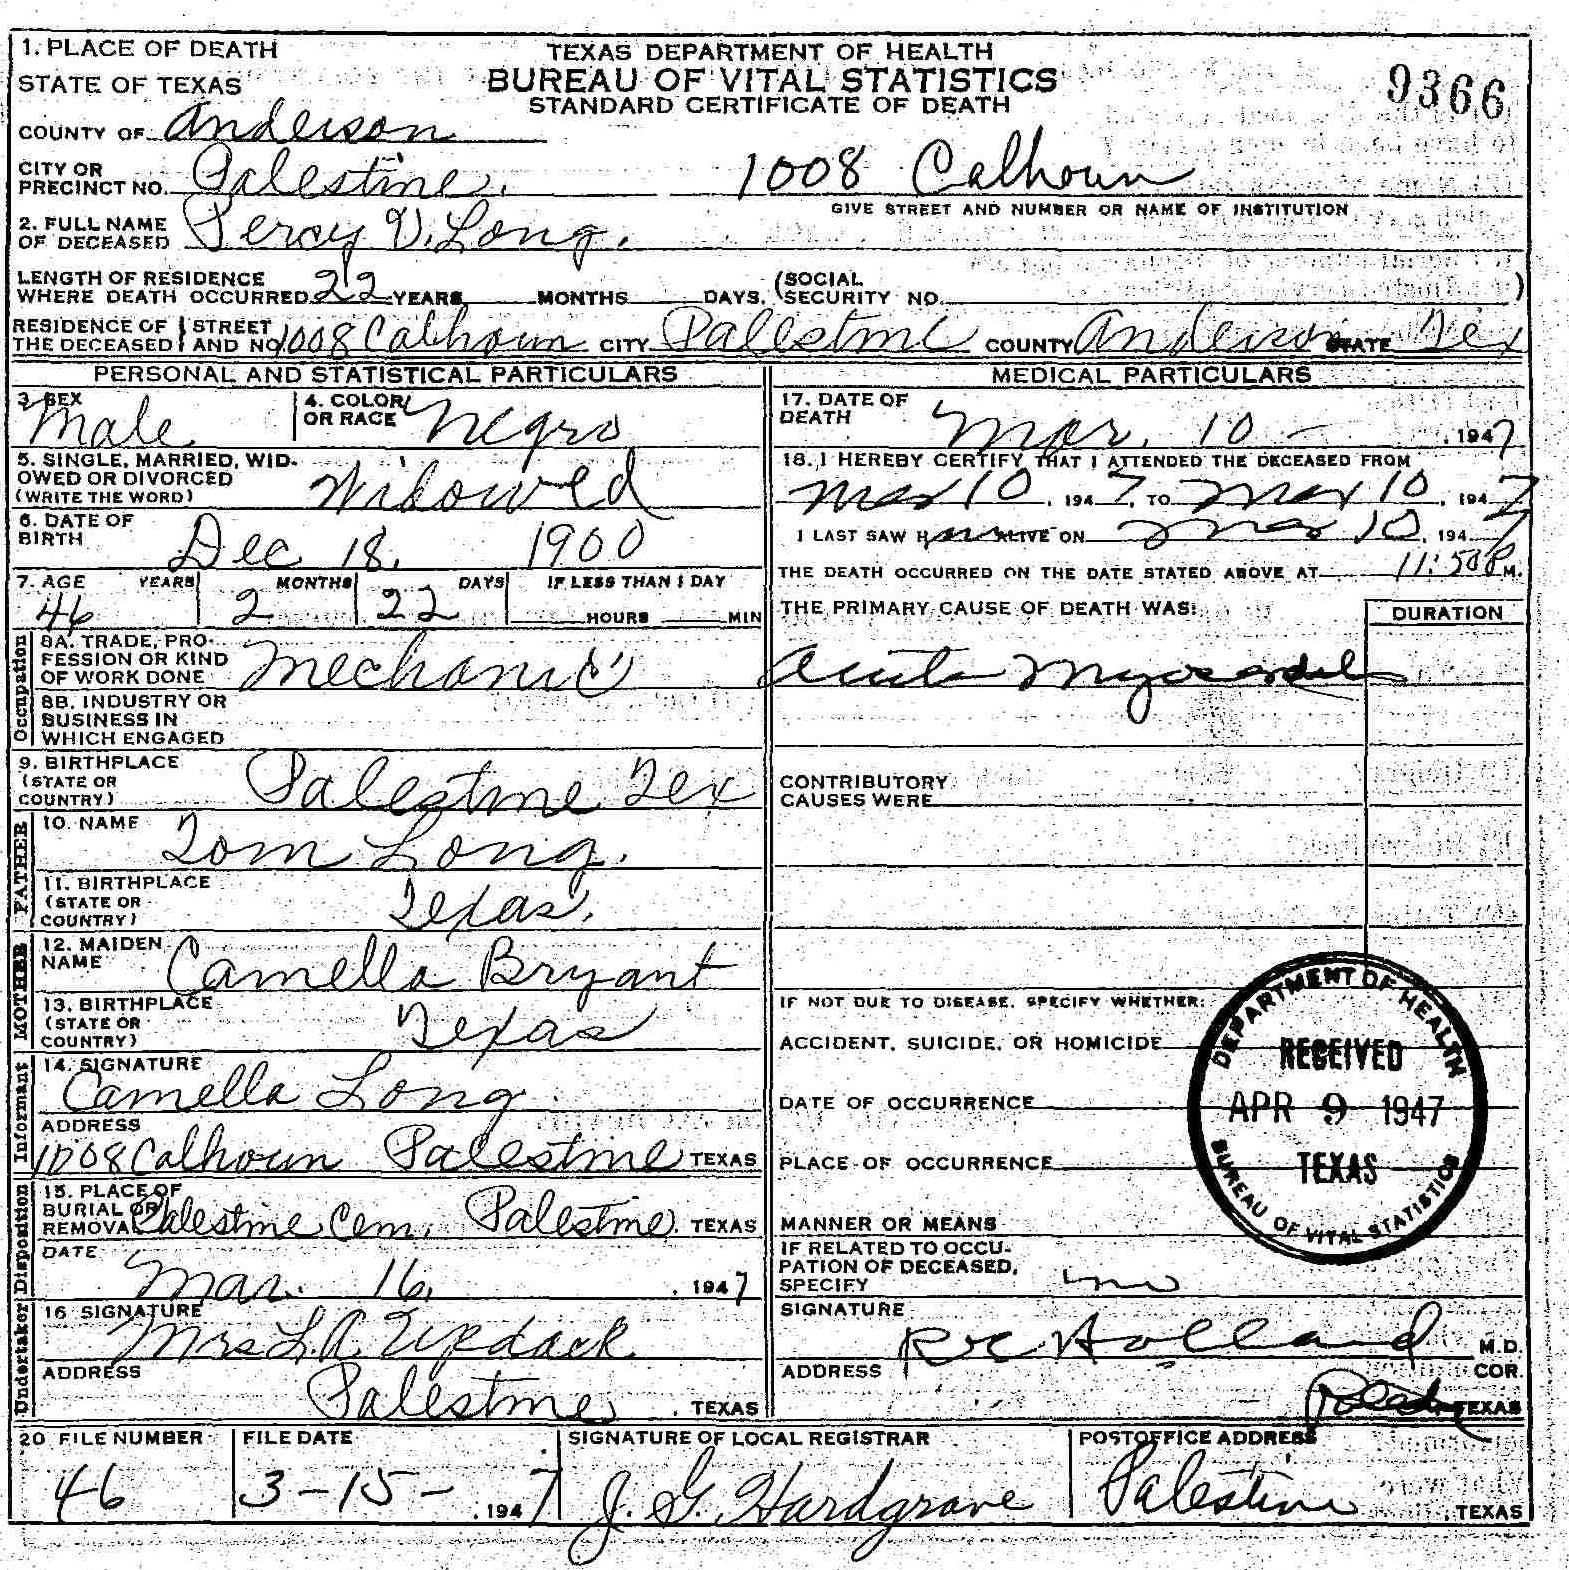 1. PLACE OF DEATH
STATE OF TEXAS
TEXAS DEPARTMENT OF HEALTH
BUREAU OF VITAL STATISTICS
STANDARD CERTIFICATE OF DEATH
9366
COUNTY OF Anderson
CITY OR PRECINCT NO. Palestine. 1008 Calhoun
GIVE STREET AND NUMBER OR NAME OF INSTITUTION
2. FULL NAME OF DECEASED Percy V. Long.
LENGTH OF RESIDENCE WHERE DEATH OCCURRED 22 YEARS MONTHS DAYS. (SOCIAL SECURITY NO. )
RESIDENCE OF THE DECEASED STREET AND NO. 1008 Calhoun CITY Palestine COUNTY Anderson STATE Tex
PERSONAL AND STATISTICAL PARTICULARS
3. SEX Male
4. COLOR OR RACE Negro
5. SINGLE, MARRIED, WIDOWED OR DIVORCED (WRITE THE WORD) Widowed
6. DATE OF BIRTH Dec 18, 1900
7. AGE YEARS MONTHS DAYS IF LESS THAN 1 DAY
46 2 22 HOURS MIN
Occupation
8A. TRADE, PROFESSION OR KIND OF WORK DONE Mechanic
8B. INDUSTRY OR BUSINESS IN WHICH ENGAGED
9. BIRTHPLACE (STATE OR COUNTRY) Palestine Tex
FATHER
10. NAME Tom Long.
11. BIRTHPLACE (STATE OR COUNTRY) Texas.
MOTHER
12. MAIDEN NAME Camella Bryant
13. BIRTHPLACE (STATE OR COUNTRY) Texas
Informant
14. SIGNATURE Camella Long
ADDRESS
1008 Calhoun Palestine TEXAS
Disposition
15. PLACE OF BURIAL OR REMOVAL Palestine Cem. Palestine. TEXAS
DATE Mar. 16, 1947
Undertaker
16 SIGNATURE Mrs L.A. Updack
ADDRESS Palestine, TEXAS
MEDICAL PARTICULARS
17. DATE OF DEATH Mar. 10 - , 1947
18. I HEREBY CERTIFY THAT I ATTENDED THE DECEASED FROM
Mar 10, 1947, TO Mar 10, 1947
I LAST SAW H ALIVE ON Mar 10, 1947
THE DEATH OCCURRED ON THE DATE STATED ABOVE AT 11:50 P.M.
THE PRIMARY CAUSE OF DEATH WAS: DURATION
Acute
CONTRIBUTORY CAUSES WERE
IF NOT DUE TO DISEASE, SPECIFY WHETHER:
ACCIDENT, SUICIDE, OR HOMICIDE
DATE OF OCCURRENCE
PLACE OF OCCURRENCE
MANNER OR MEANS
DEPARTMENT OF HEALTH
RECEIVED
APR 9 1947
TEXAS
BUREAU OF VITAL STATISTICS
IF RELATED TO OCCUPATION OF DECEASED, SPECIFY no
SIGNATURE Holland M.D.
ADDRESS COR.
TEXAS
20 FILE NUMBER FILE DATE SIGNATURE OF LOCAL REGISTRAR POSTOFFICE ADDRESS
46 3-15-, 1947 J. G. Hardgrave Palestine, TEXAS